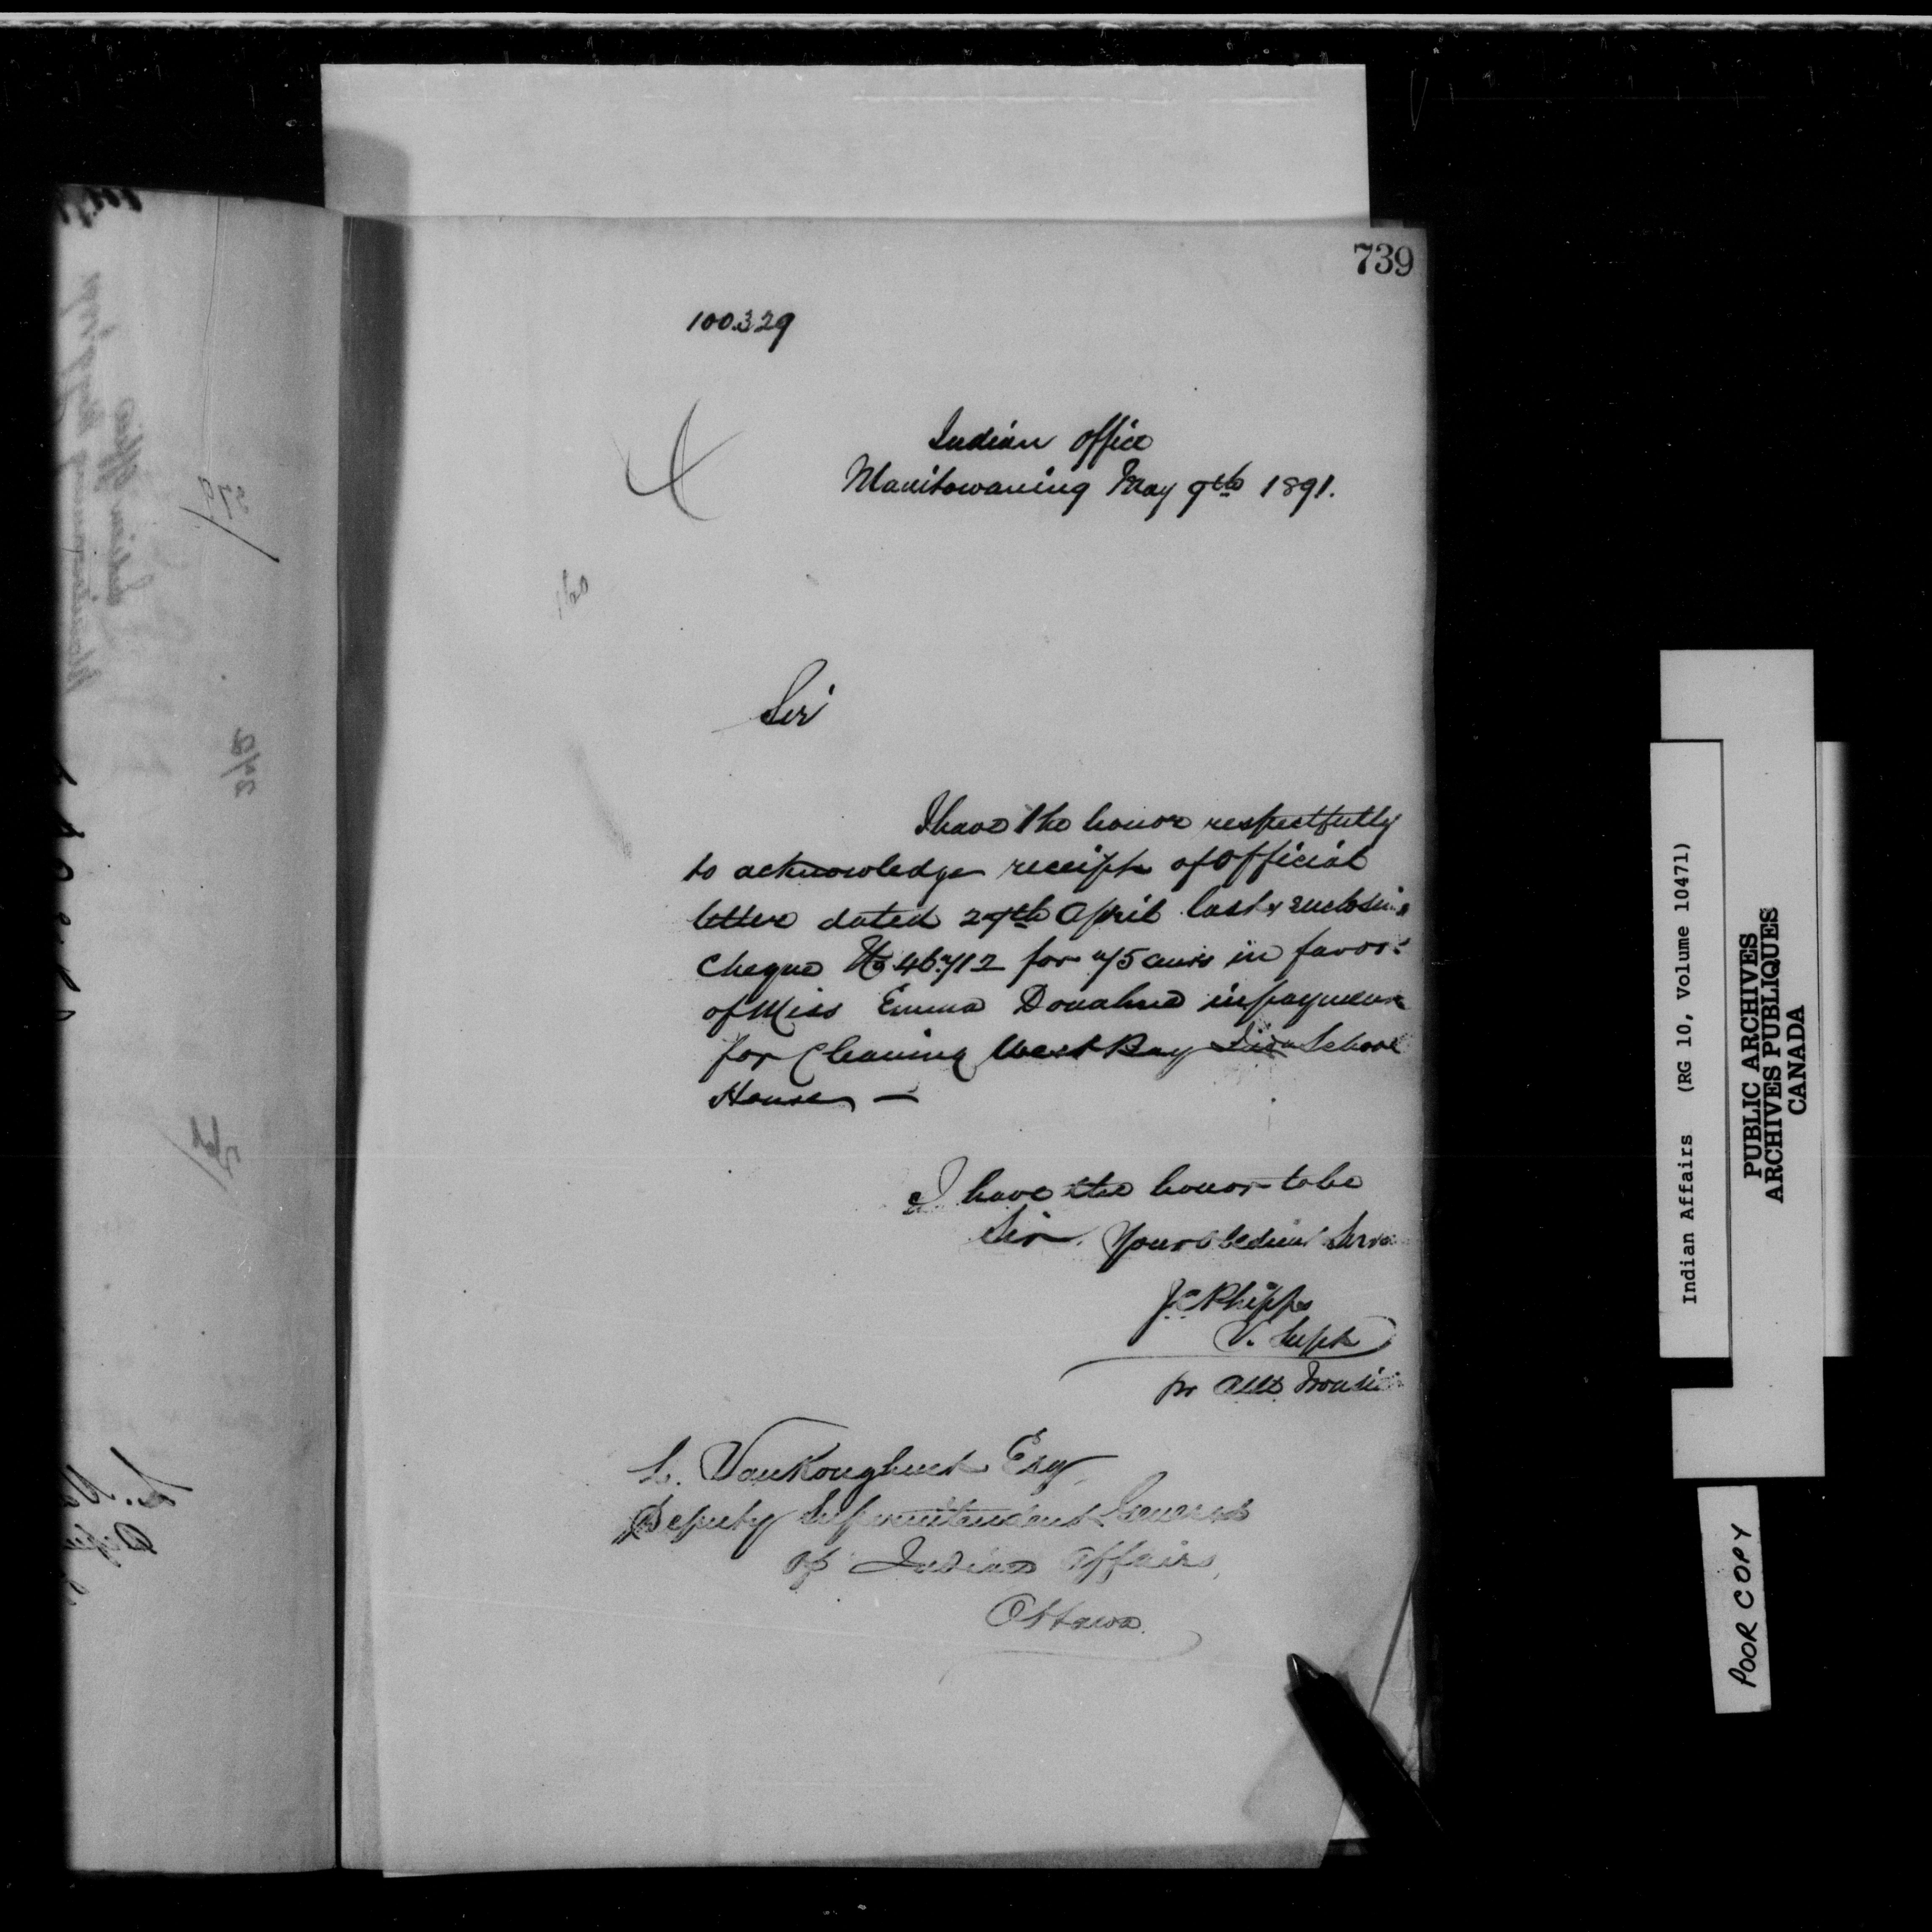 739
100.329
Indian Office
Manitowaning May 9th 1891.
160
Sir
I have the honor respectfully
to acknowledge receipt of Official
letter dated 29th April last & enclosing
Cheque No 46712 for 75 cents in favor
of Miss Emma Donahue in payment
for Cleaning West Bay Indn School
House —
I have the honor to be
Sir, Your Obedient Serva
Jas Phipps
V. Supt
pr Alex
L. VanKoughnet Esq
Deputy Superintendent General
of Indian Affairs,
Ottawa.
Indian Affairs (RG 10, Volume 10471)
PUBLIC ARCHIVES
ARCHIVES PUBLIQUES
CANADA
POOR COPY